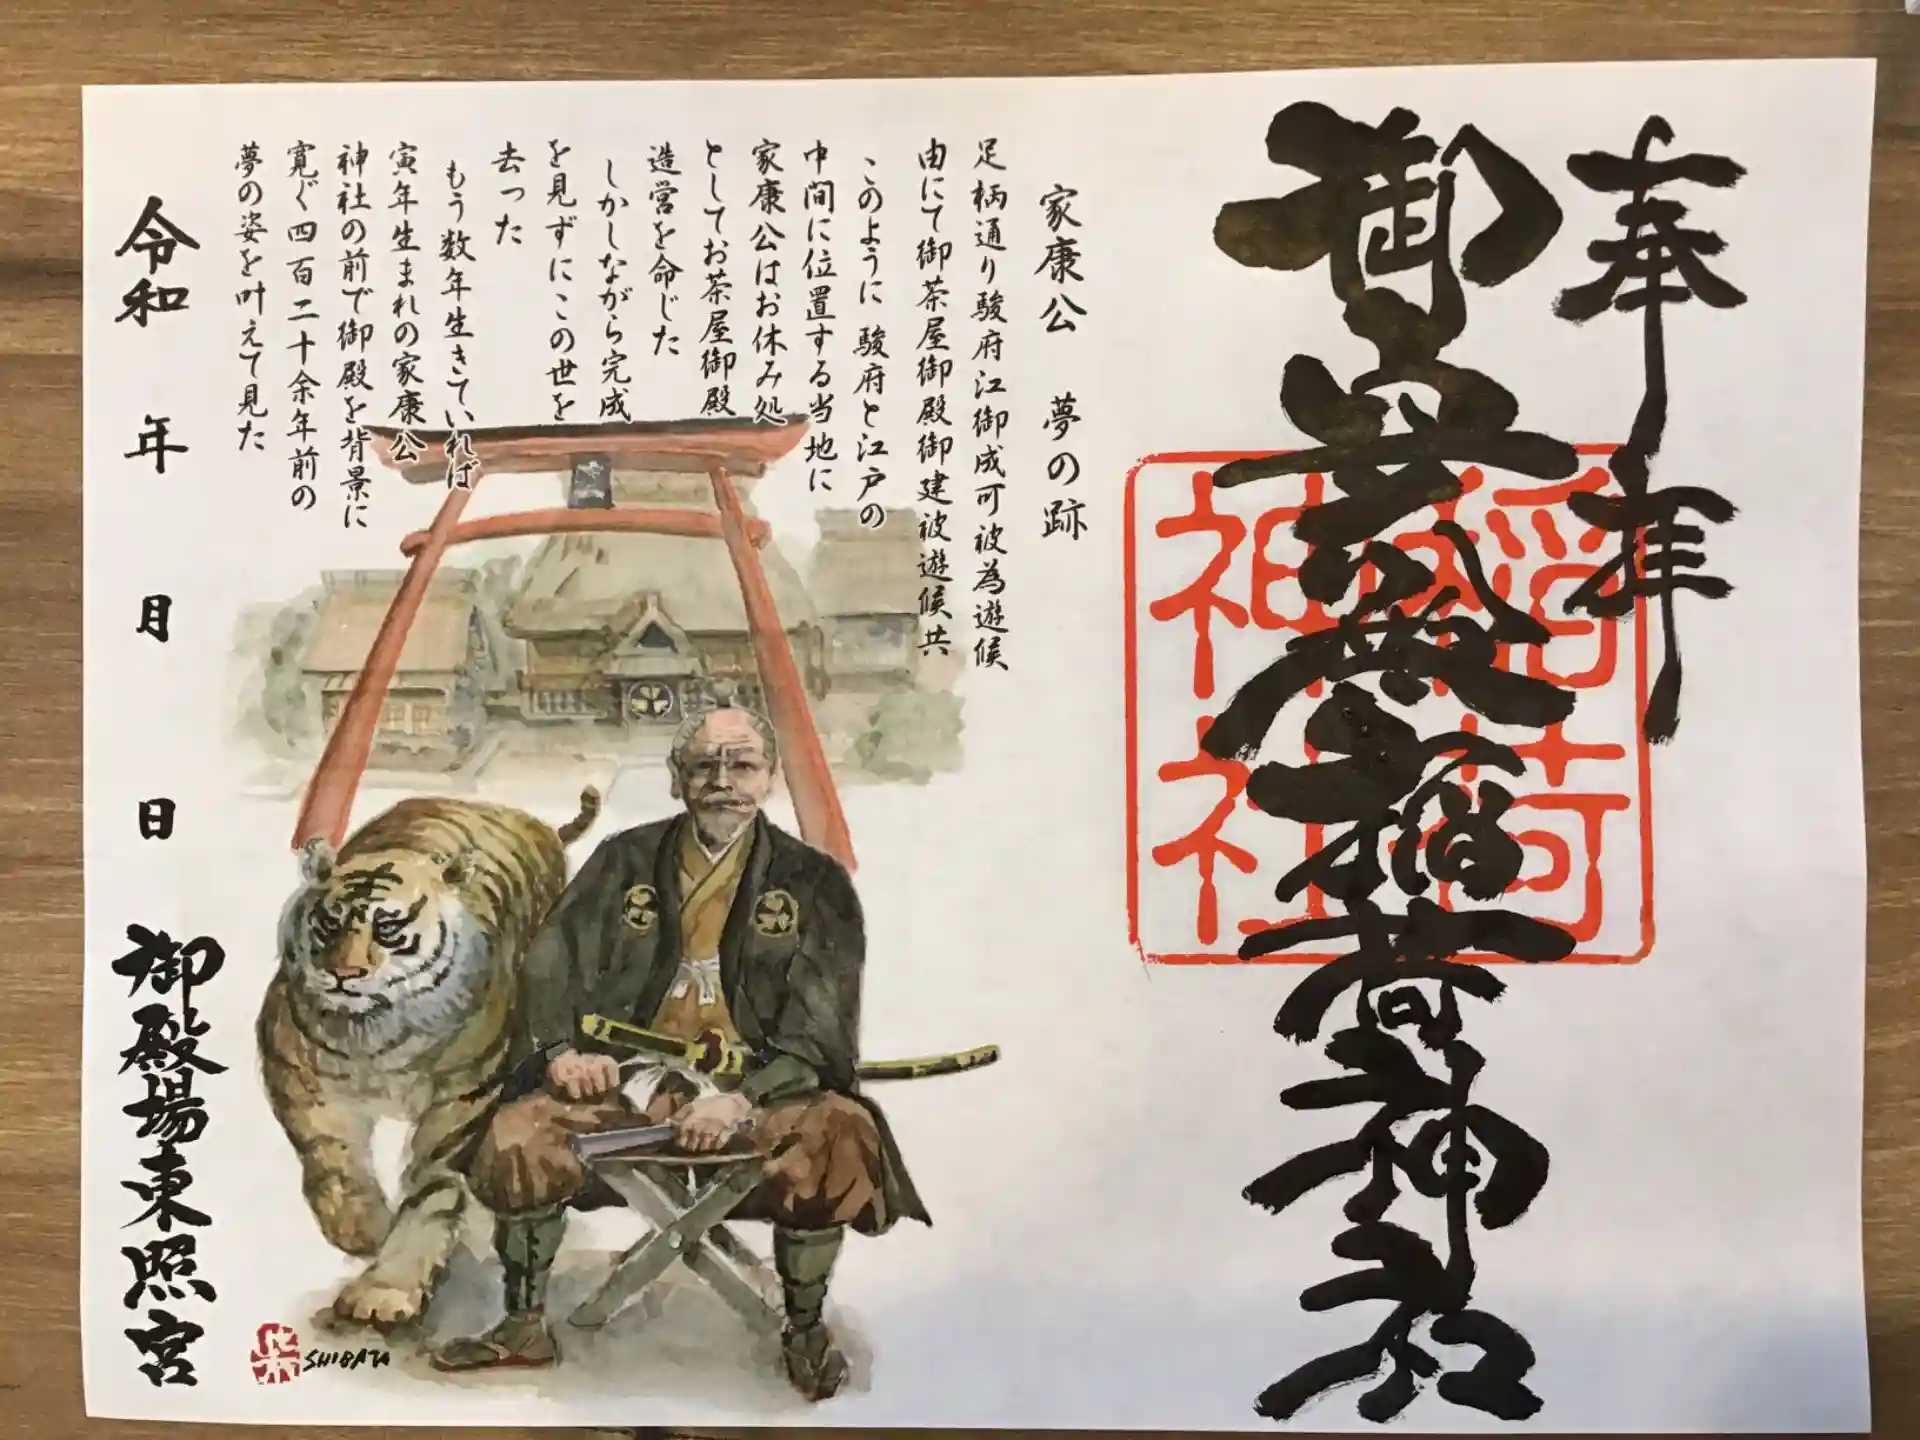 奉拝
御宮殿稲荷神社
稲荷
神社
家康公 夢の跡
足柄通り駿府江御成可被為遊候
由にて御茶屋御殿御建被遊候共
このように 駿府と江戸の
中間に位置する当地に
家康公はお休み処
としてお茶屋御殿
造営を命じた
しかしながら完成
を見ずにこの世を
去った
もう数年生きていれば
寅年生まれの家康公
神社の前で御殿を背景に
寛ぐ四百二十余年前の
夢の姿を叶えて見た
令和 年 月 日
御殿場東照宮
柴
SHIBATA